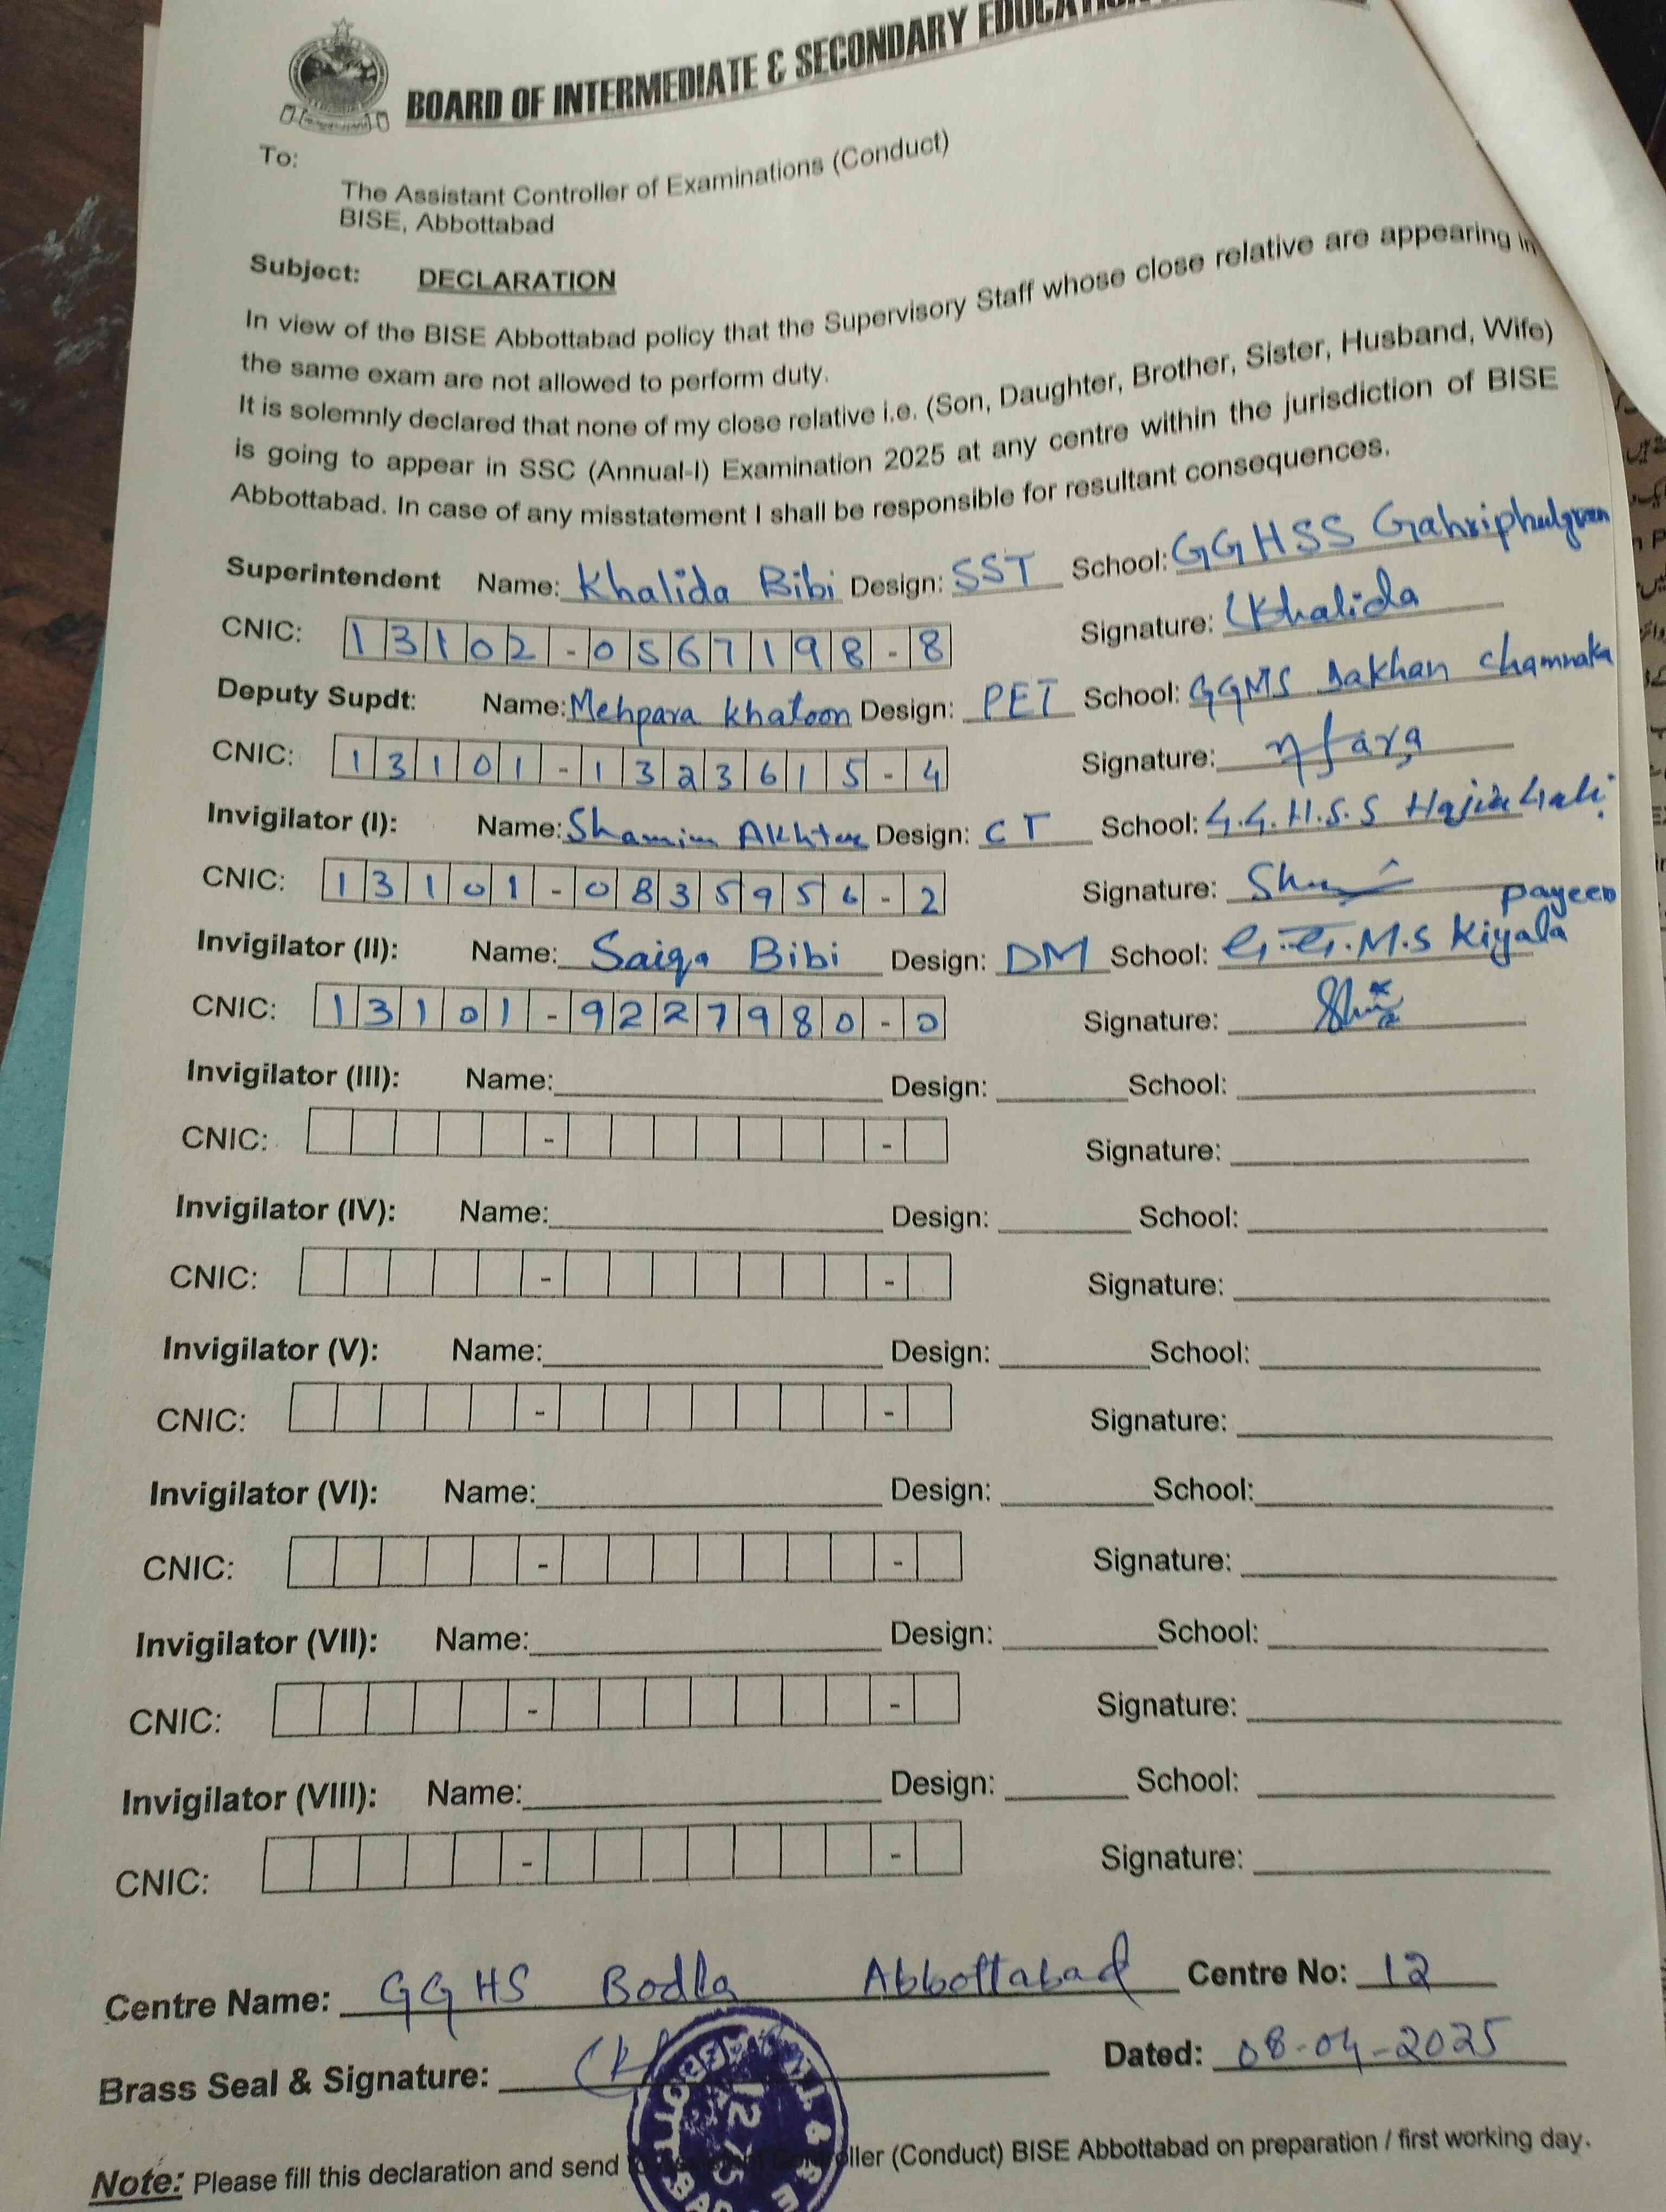 BOARD OF INTERMEDIATE & SECONDARY EDUCATION
To:
The Assistant Controller of Examinations (Conduct)
BISE, Abbottabad
Subject: DECLARATION
In view of the BISE Abbottabad policy that the Supervisory Staff whose close relative are appearing in
the same exam are not allowed to perform duty.
It is solemnly declared that none of my close relative i.e. (Son, Daughter, Brother, Sister, Husband, Wife)
is going to appear in SSC (Annual-I) Examination 2025 at any centre within the jurisdiction of BISE
Abbottabad. In case of any misstatement I shall be responsible for resultant consequences.
Superintendent Name: Khalida Bibi Design: SST School: GGHSS
CNIC: 13102-0567198-8 Signature: Khalida
Deputy Supdt: Name: Mehpara Khatoon Design: PET School: GGMS Dakhan Chamnaka
CNIC: 13101-1323615-4 Signature:
Invigilator (I): Name: Shamim Akhter Design: CT School: G.G.H.S.S
CNIC: 13101-0835956-2 Signature:
Invigilator (II): Name: Saiqa Bibi Design: DM School: G.G.M.S Kiyala payeen
CNIC: 13101-9227980-0 Signature:
Invigilator (III): Name: Design: School:
CNIC: - - Signature:
Invigilator (IV): Name: Design: School:
CNIC: - - Signature:
Invigilator (V): Name: Design: School:
CNIC: - - Signature:
Invigilator (VI): Name: Design: School:
CNIC: - - Signature:
Invigilator (VII): Name: Design: School:
CNIC: - - Signature:
Invigilator (VIII): Name: Design: School:
CNIC: - - Signature:
Centre Name: GGHS Bodla Abbottabad Centre No: 12
Brass Seal & Signature: Dated: 08-04-2025
Note: Please fill this declaration and send (Conduct) BISE Abbottabad on preparation / first working day.